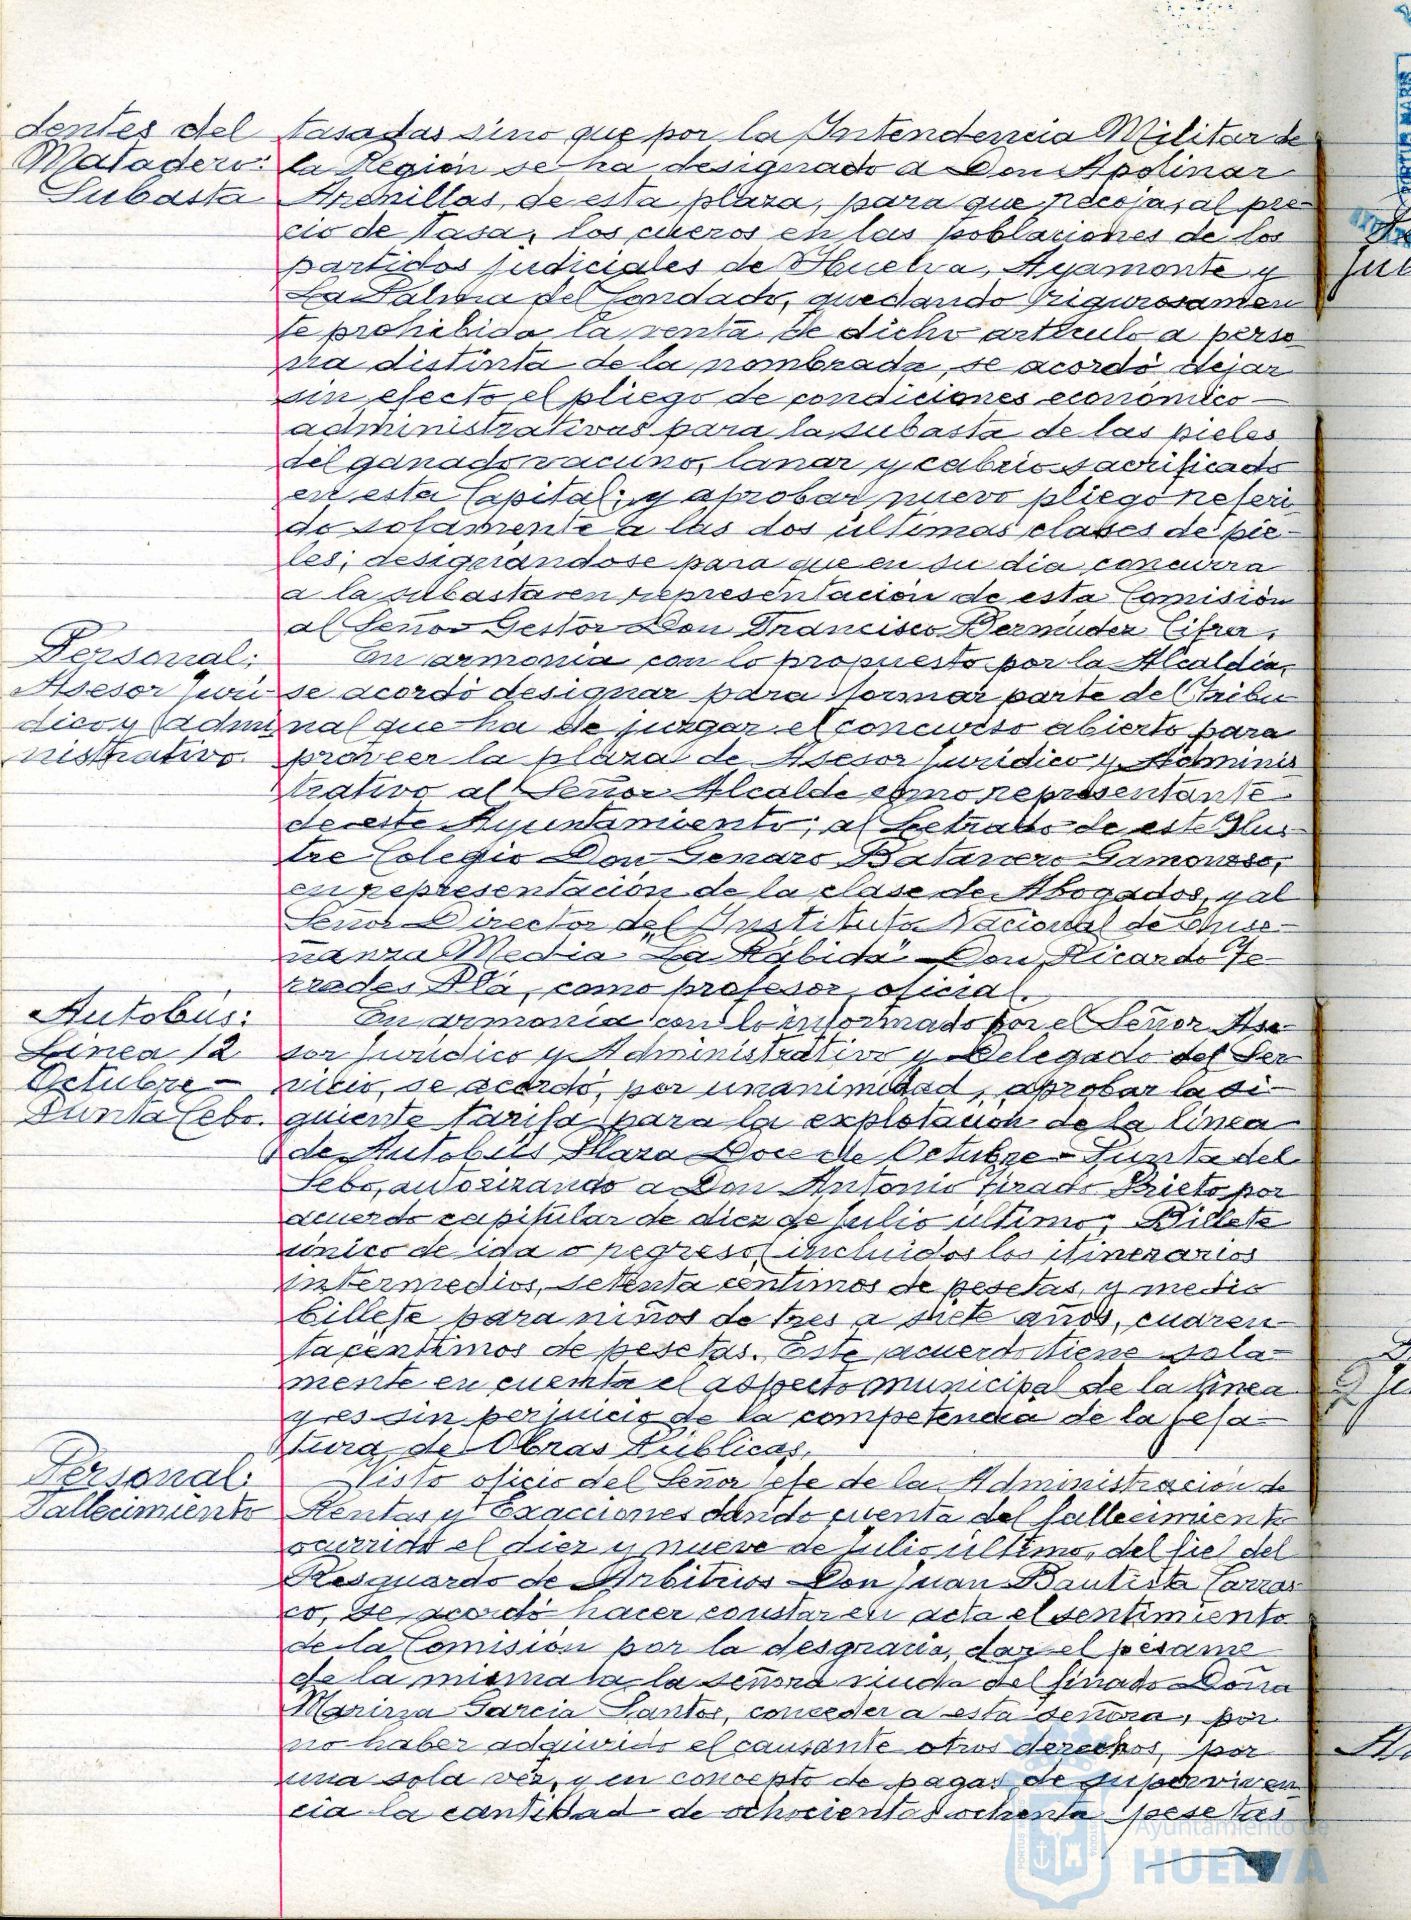 dentes del
Matadero:
Subasta
tasadas sino que por la Intendencia Militar de
la Región se ha designado a Don Apolinar
Arenillas, de esta plaza, para que recoja, al pre-
cio de tasa, los cueros en las poblaciones de los
partidos judiciales de Huelva, Ayamonte y
La Palma del Condado, quedando rigurosamen
te prohibida la venta de dicho artículo a perso
na distinta de la nombrada, se acordó dejar
sin efecto el pliego de condiciones económico-
administrativas para la subasta de las pieles
del ganado vacuno, lanar y cabrío sacrificado
en esta Capital; y aprobar nuevo pliego referi
do solamente a las dos últimas clases de pie-
les; designándose para que en su día concurra
a la subasta en representación de esta Comisión
al Señor Gestor Don Francisco Bermúdez Cifra.
Personal:
Asesor Jurí-
dico y admi
nistrativo.
En armonía con lo propuesto por la Alcaldía,
se acordó designar para formar parte del Tribu
nal que ha de juzgar el concurso abierto para
proveer la plaza de Asesor Jurídico y Adminis
trativo al Señor Alcalde como representante
de este Ayuntamiento; al Letrado de este Ilus-
tre Colegio Don Genaro Batanero Gamonoso,
en representación de la clase de Abogados, y al
Señor Director del Instituto Nacional de Ense-
ñanza Media "La Rábida" Don Ricardo Te-
rrades Plá, como profesor oficial.
Autobús:
Línea 12
Octubre-
Punta Cebo.
En armonía con lo informado por el Señor Ase-
sor Jurídico y Administrativo y Delegado del Ser
vicio, se acordó, por unanimidad, aprobar la si-
guiente tarifa para la explotación de la línea
de Autobús Plaza Doce de Octubre-Punta del
Sebo, autorizando a Don Antonio Tirado Prieto por
acuerdo capitular de diez de Julio último; Billete
único de ida o regreso, incluidos los itinerarios
intermedios, setenta céntimos de pesetas, y medio
billete para niños de tres a siete años, cuaren-
ta céntimos de pesetas. Este acuerdo tiene sola-
mente en cuenta el aspecto municipal de la línea
y es sin perjuicio de la competencia de la Jefa-
tura de Obras Públicas.
Personal:
Fallecimiento
Visto oficio del Señor Jefe de la Administración de
Rentas y Exacciones dando cuenta del fallecimiento
ocurrido el diez y nueve de Julio último, del fiel del
Resguardo de Arbitrios Don Juan Bautista Carras
co, se acordó hacer constar en acta el sentimiento
de la Comisión por la desgracia, dar el pésame
de la misma a la señora viuda del finado Doña
Marina García Santos, conceder a esta señora, por
no haber adquirido el causante otros derechos, por
una sola vez, y en concepto de pagas de superviven
cia la cantidad de ochocientas ochenta pesetas
Ayuntamiento de
HUELVA